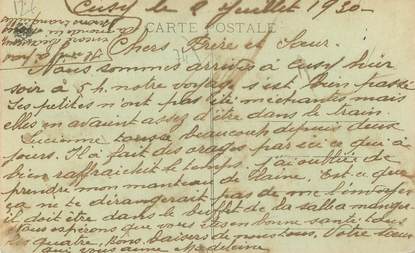 Cusy le 2 Juillet 1930 -
CARTE POSTALE
Chers Frère et Sœur.
Nous sommes arrivés à Cusy hier
soir à 5 h. notre voyage s'est bien passé
Les petites n'ont pas été méchantes mais
elles en avaient assez d'être dans le train.
Lucienne tousse beaucoup depuis deux
jours. Il a fait des orages par ici ce qui a
bien raffraichit le temps. J'ai oublié de
prendre mon manteau de laine. Est-ce que
ça ne te dérangerait pas de me l'envoyer
il doit être dans le buffet de la salle à manger.
Nous espérons que vous êtes en bonne santé tous
les quatre. Bons baisers de nous tous. Votre sœur
qui vous aime Madeleine